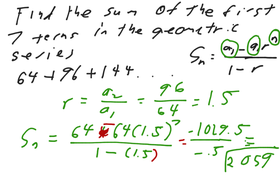 Find the sum of the first
7 terms in the geometric
series
Sₙ = (a₁ - a₁rⁿ) / (1 - r)
64 + 96 + 144 . . .
r = a₂/a₁ = 96/64 = 1.5
Sₙ = (64 - 64(1.5)⁷) / (1 - (1.5)) = -1029.5 / -.5 = 2059